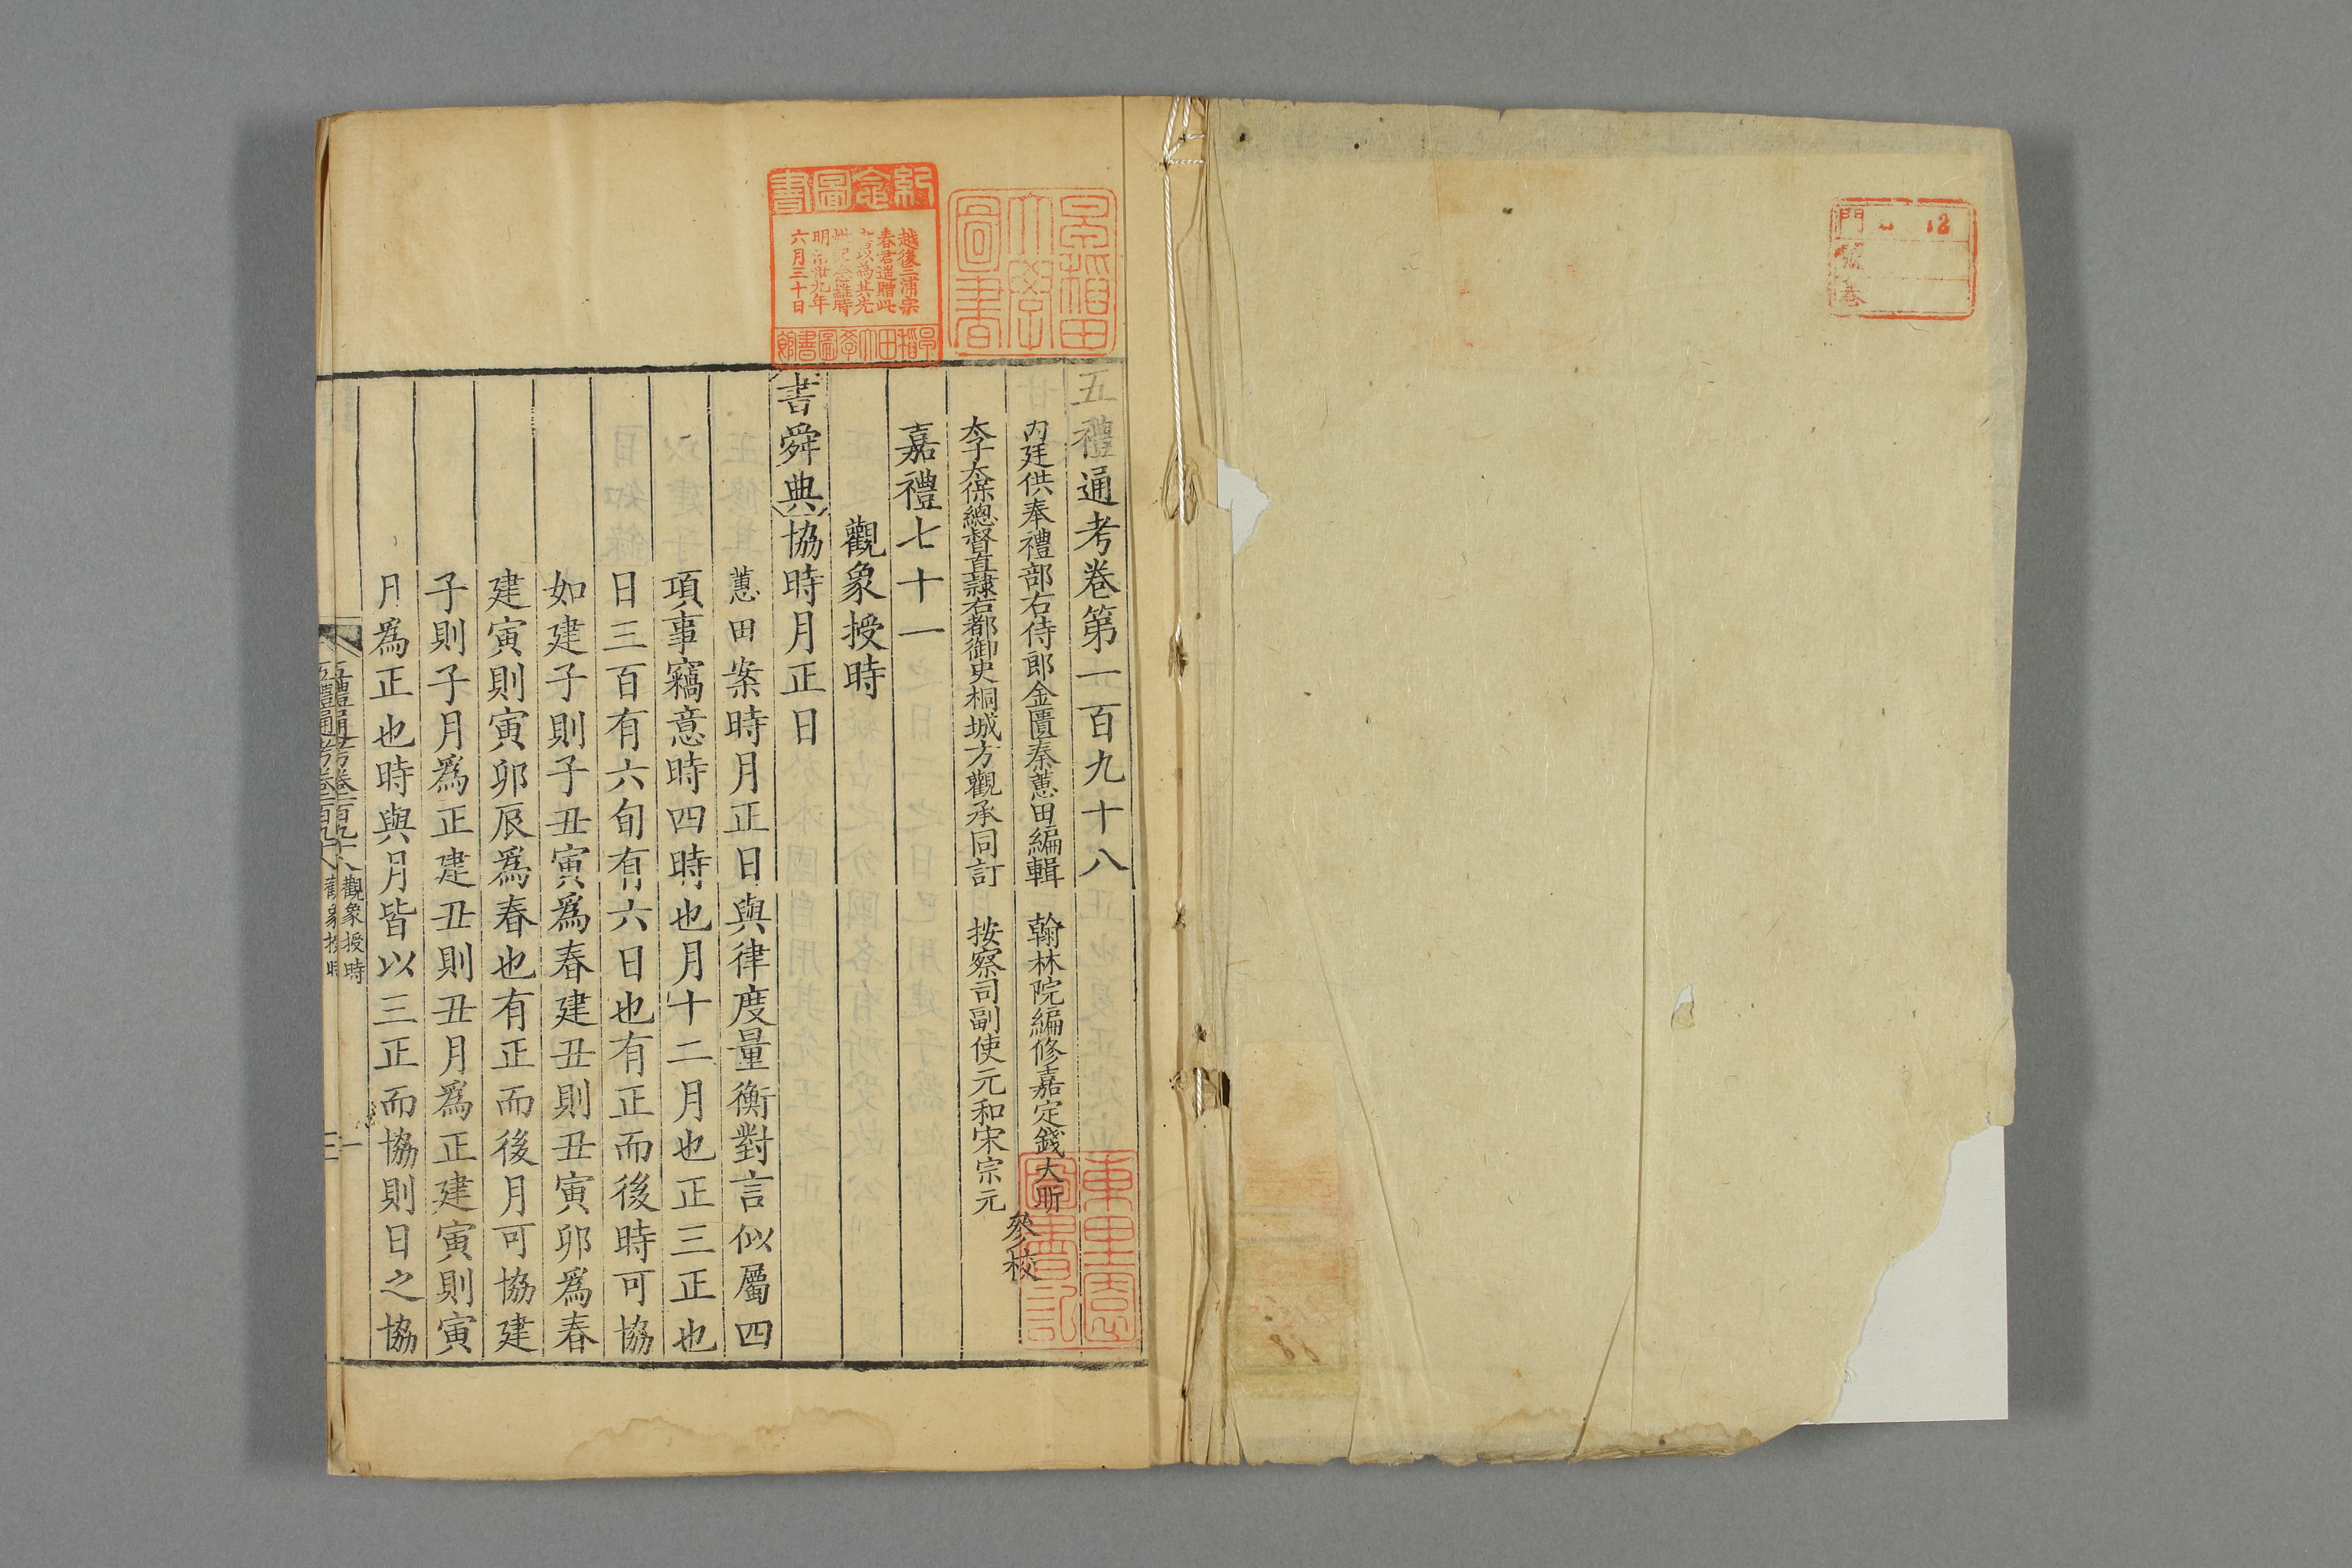 門 12
號
巻
早稲田
大學
圖書
紀念圖書
越後三浦宗
春君遥贈此
書以為其先
明治卅九年
六月三十日
早稲田大學圖書館
五禮通考卷第一百九十八
内廷供奉禮部右侍郎金匱秦蕙田編輯 翰林院編修嘉定錢大昕
太子太保總督直隷右都御史桐城方觀承同訂 按察司副使元和宋宗元
參校
嘉禮七十一
觀象授時
書舜典協時月正日
蕙田案時月正日與律度量衡對言似屬四
項事竊意時四時也月十二月也正三正也
日三百有六旬有六日也有正而後時可協
如建子則子丑寅爲春建丑則丑寅卯爲春
建寅則寅卯辰爲春也有正而後月可協建
子則子月爲正建丑則丑月爲正建寅則寅
月爲正也時與月皆以三正而協則日之協
五禮通考卷一百九十八 觀象授時 一